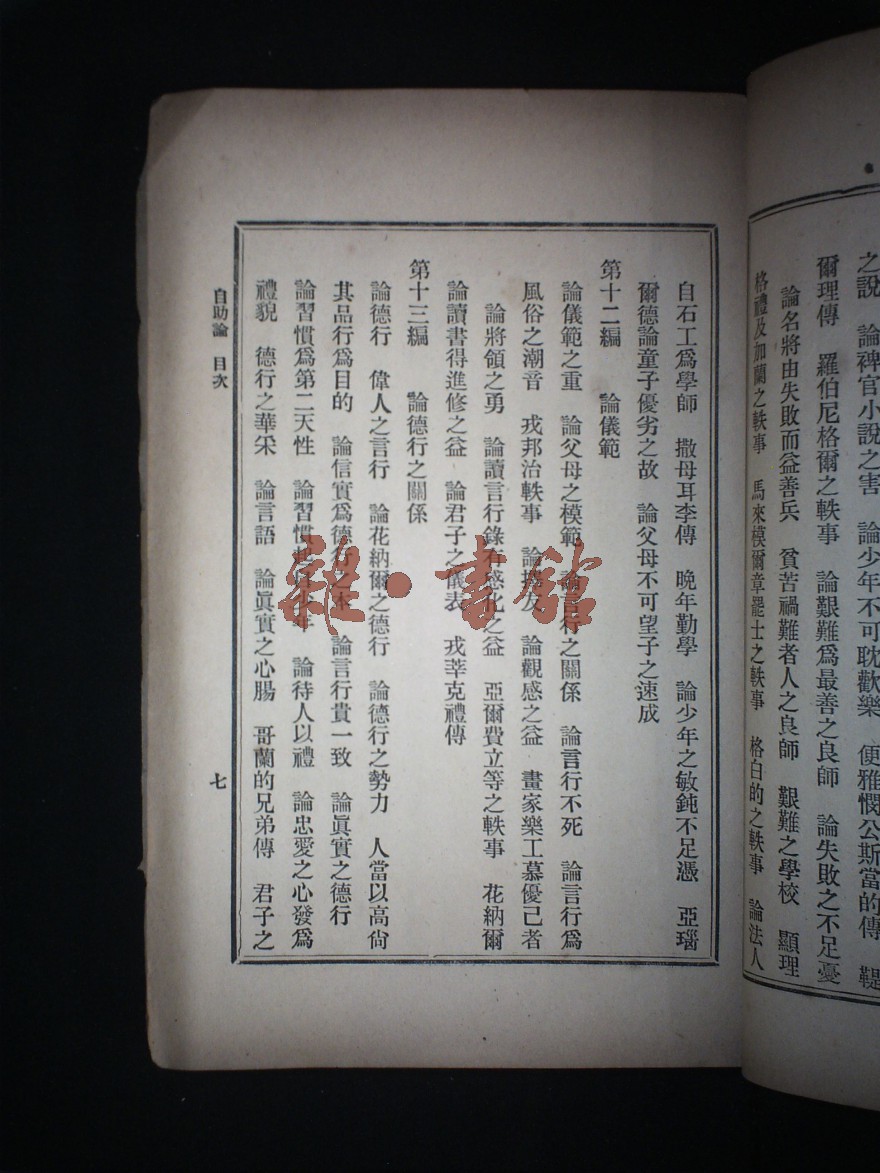 之說　論裨官小說之害　論少年不可耽歡樂　便雅憫公斯當的傳　鞮
爾理傳　羅伯尼格爾之軼事　論艱難爲最善之良師　論失敗之不足憂
論名將由失敗而益善兵　貧苦禍難者人之良師　艱難之學校　顯理
格禮及加蘭之軼事　馬來模爾章罷士之軼事　格白的之軼事　論法人
自石工爲學師　撒母耳李傳　晚年勤學　論少年之敏鈍不足憑　亞瑙
爾德論童子優劣之故　論父母不可望子之速成
第十二編　論儀範
論儀範之重　論父母之模範　論言行之關係　論言行不死　論言行爲
風俗之潮音　戎邦治軼事　論擇友　論觀感之益　畫家樂工慕優己者
論將領之勇　論讀言行錄有感化之益　亞爾費立等之軼事　花納爾
論讀書得進修之益　論君子之儀表　戎莘克禮傳
第十三編　論德行之關係
論德行　偉人之言行　論花納爾之德行　論德行之勢力　人當以高尙
其品行爲目的　論信實爲德行之本　論言行貴一致　論眞實之德行
論習慣爲第二天性　論習慣起於少年　論待人以禮　論忠愛之心發爲
禮貌　德行之華采　論言語　論眞實之心腸　哥蘭的兄弟傳　君子之
自助論　目次
七
雜·書館